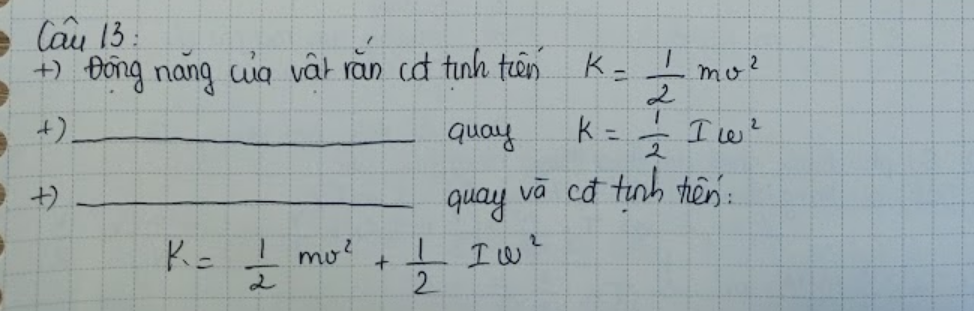 Câu 13:
+) Động năng của vật rắn cđ tịnh tiến K = 1/2 mv²
+) ____________ quay K = 1/2 Iω²
+) ____________ quay và cđ tịnh tiến:
K = 1/2 mv² + 1/2 Iω²